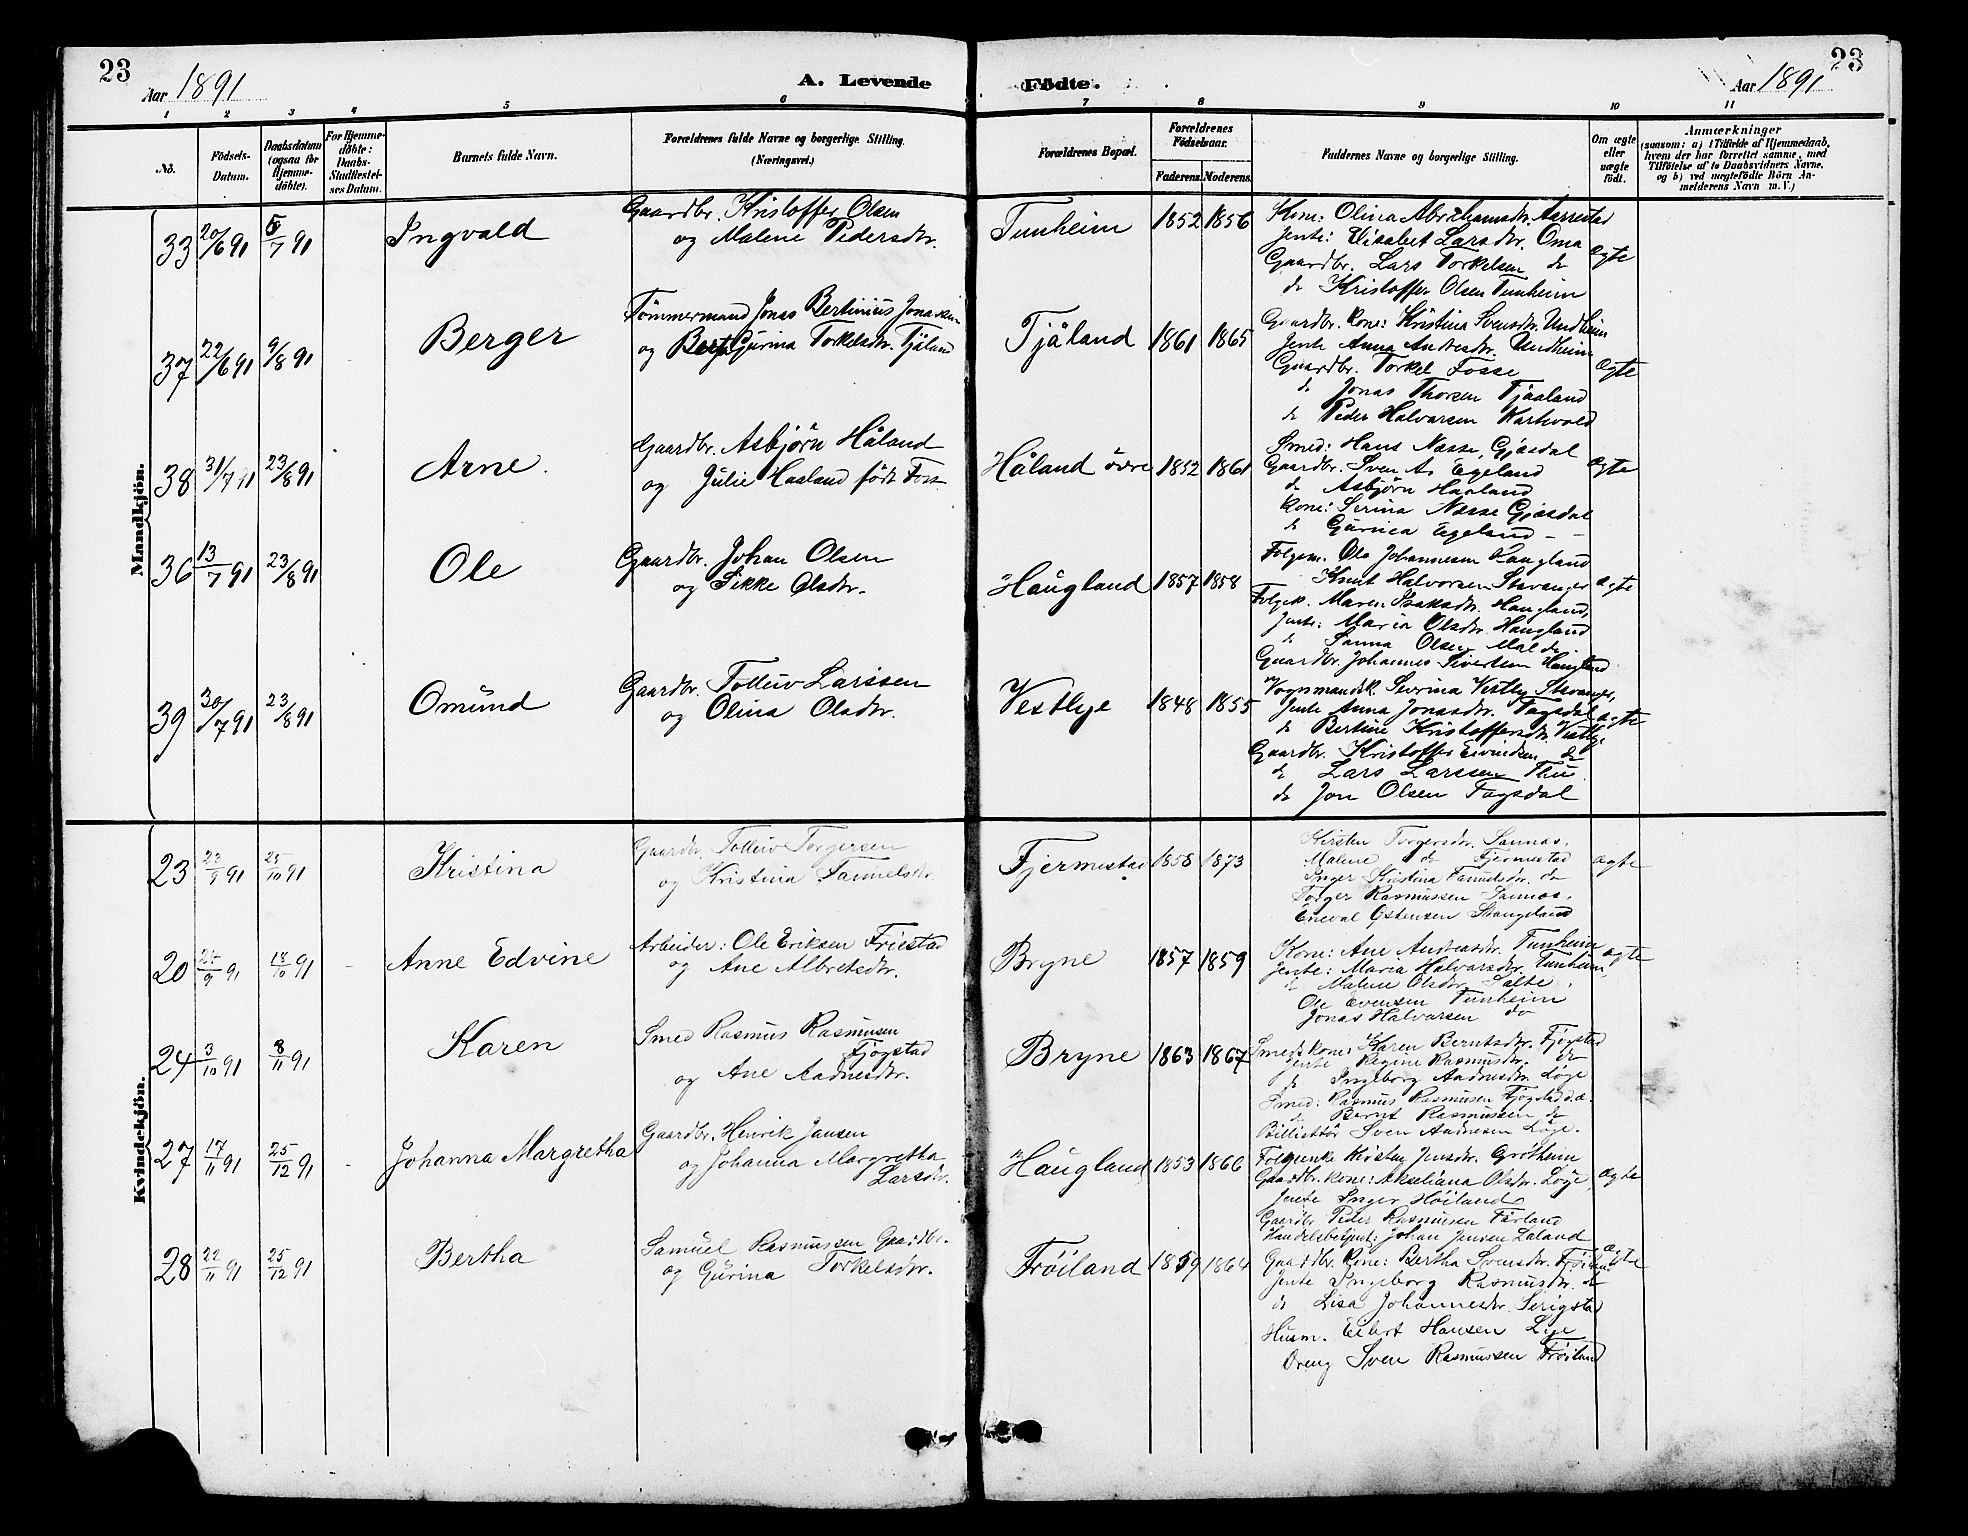 23
Aar 1891
A. Levende
Födte.
Aar 1891
23
1 2 3 4 5 6 7 8 9 10 11
No.
Födsels-
Datum.
Daabsdatum
(ogsaa for
Hjemme-
döbte).
For Hjemme-
döbte:
Daabs-
Stadfæstel-
ses Datum.
Barnets fulde Navn.
Forældrenes fulde Navne og borgerlige Stilling.
(Næringsvei.)
Forældrenes Bopæl.
Forældrenes
Födselsaar.
Faderens. Moderens.
Faddernes Navne og borgerlige Stilling.
Om ægte
eller
uægte
födt.
Anmærkninger
(saasom: a) i Tilfælde af Hjemmedaab,
hvem der har forrettet samme, med
Tilföielse af to Daabsvidners Navne.
og b) ved uægtefödte Börn An-
melderens Navn m. V.)
Mandkjön.
33 20/6 91 5/7 91 Ingvald
Gaardbr. Kristoffer Olsen
og Malene Pedersdtr.
Tunheim 1852 1856
Kone: Olina Abrahamsdtr. Aarrestad
Jente: Elisabet Larsdtr. Oma
Gaardbr. Lars Torkelsen do
do Kristoffer Olsen Tunheim
ægte
37 22/6 91 9/8 91 Berger
Tømmermand Jonas Bertinius Jonassen
og Gurina Torkelsdtr. Tjåland
Tjåland 1861 1865
Gaardbr. kone: Kristina Svensdtr. Undheim
Jente Anna Undheim
Gaardbr. Torkel Fosse
do Jonas Thorsen Tjaaland
do Peder Halvorsen
ægte
38 31/7 91 23/8 91 Arne.
Gaardbr. Asbjørn Håland
og Julie Haaland født Foss
Håland övre 1852 1861
Smed: Hans Næsse, Gjæsdal
Gaardbr. Sven A. Egeland
do Asbjørn Haaland
Kone: Serina Næsse Gjæsdal
do Gurina Egeland
ægte
36 13/7 91 23/8 91 Ole
Gaardbr. Johan Olsen
og Sikke Olsdtr.
Haugland 1857 1858
Folgem. Ole Johannesen Haugland
Knut Halvorsen Stavanger
Folgek. Maren Isaksdtr. Haugland,
Jente: Maria Olsdtr. Haugland
do Sanna Olsen Malde.
Gaardbr. Johannes Sivertsen Haugland
ægte
39 30/7 91 23/8 91 Omund
Gaardbr. Tolleiv Larssen
og Olina Olsdtr.
Vestlye 1848 1855
Vognmandsk. Severina Vestly Stavanger,
Jente Anna Jonasdtr. Fagsdal
do Bertine Kristoffersdtr. Vestlye
Gaardbr. Kristoffer Eivindsen do
do Lars Larssen Thu
do Jon Olsen Fagsdal
ægte
Kvindekjön.
23 91 25/10 91 Kristina
Gaardbr Tolleiv Torgersen
og Kristina
Fjermestad 1858 1873
Kirsten Torgersdtr.
Malene do Fjermestad
Inger Kristina do
Torger Rasmussen
Eneval Østensen Stangeland
ægte
20 91 18/10 91 - Anne Edvine
Arbeider: Ole Eriksen Friestad
og Ane Albretsdtr.
Bryne 1857 1859
Kone: Ane Andreasdtr. Tunheim
Jente: Maria Halvorsdtr. Tunheim,
do Malene Olsdtr. Salte.
Ole Evensen Tunheim
Jonas Halvorsen do
ægte
24 3/10 91 8/11 91 Karen
Smed Rasmus Rasmusen
Fjogstad
og Ane Aadnesdtr.
Bryne 1863 1867
Smeds kone: Karen Berntsdtr. Fjøgstad
Jente Regine Rasmusdtr. do
do Ingeborg Aadnesdtr. Løge
Smed: Rasmus Rasmusen Fjøgstad s.æ.
do Bernt Rasmussen do
Billettör Sven Aadnesen Løge.
27 17/11 91 25/12 91 - Johanna Margretha
Gaardbr. Henrik Jansen
og Johanna Margretha
Larsdtr.
Haugland 1853 1866
Folgeenke Kirsten Jensdtr. Grótheim
Gaardbr. kone: Akseliana Olsdtr. Løge
Jente Inger Høiland
Gaardbr Peder Rasmussen Fårland
Handelsbetjent: Johan Jensen Laland
ægte
28 22/11 91 25/12 91 Bertha
Samuel Rasmussen Gaardbr.
og Gurina Torkelsdtr.
Frøiland 1859 1864
Gaardbr. Kone: Bertha Svensdtr. Frøiland
Jente Ingeborg Rasmusdtr. do
do Lisa Johannesdtr. Serigstad
Husm. Eilert Hansen Lye
Dreng Sven Rasmussen Frøiland
ægte